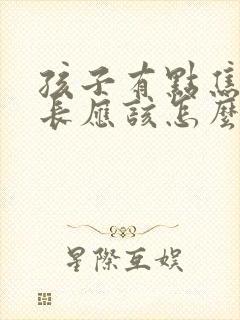 孩子有點焦
長應該怎麼
星際互娛